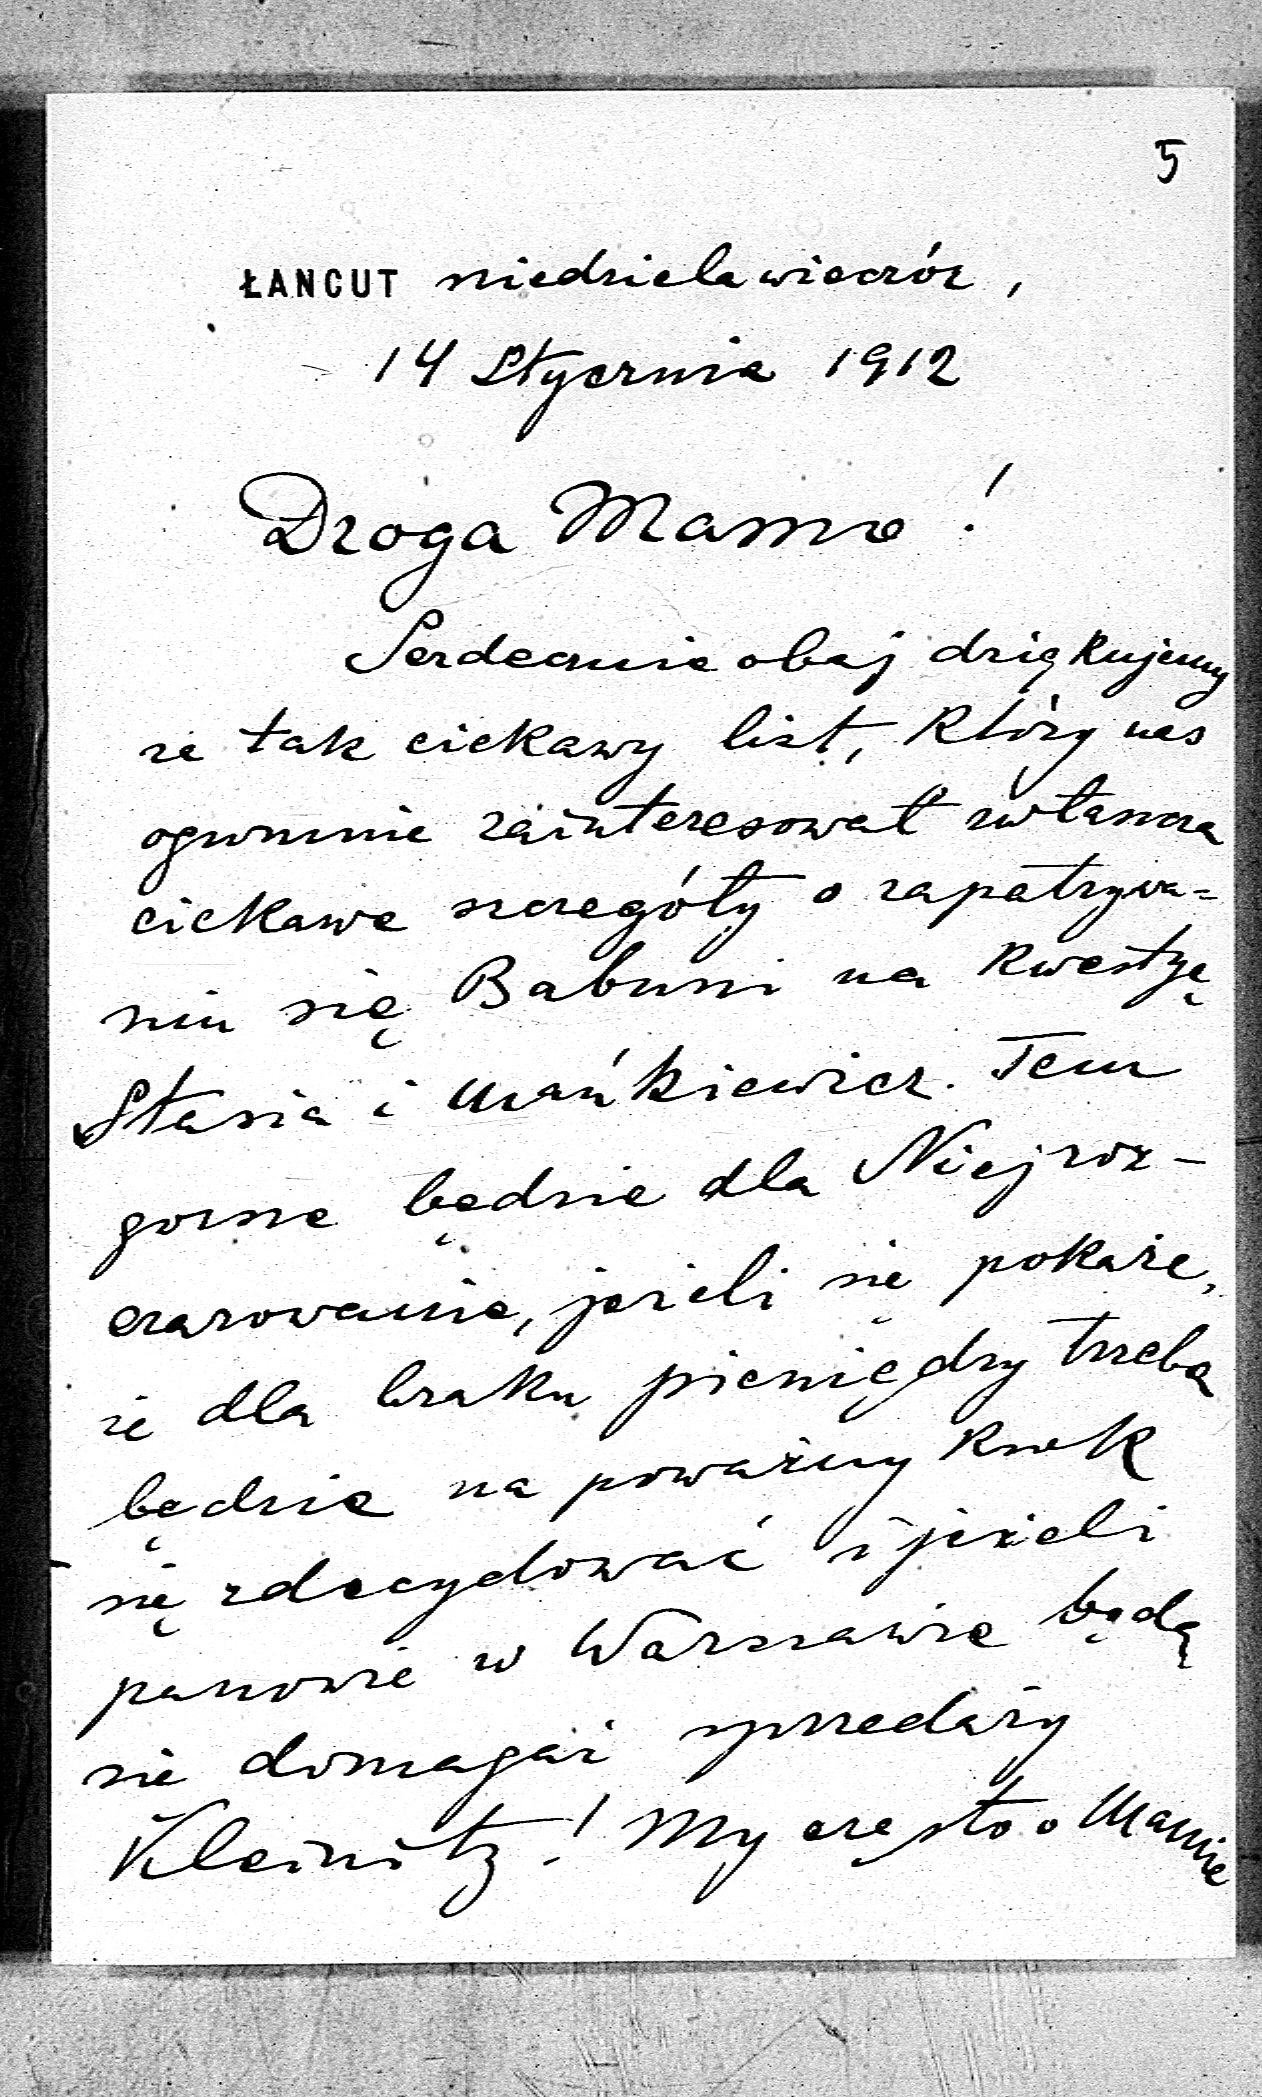 5
ŁANCUT niedziela wieczór,
14 Stycznia 1912
Droga Mamo!
Serdecznie obaj dziękujemy
za tak ciekawy list, który nas
ogromnie zainteresował zwłaszcza
ciekawe szczegóły o zapatrywa=
niu się Babuni na kwestyę
Stasia i Mańkiewicz. Tem
gorsze będzie dla Niej roz-
czarowanie, jeżeli się pokaże,
że dla braku pieniędzy trzeba
będzie na poważny krok
się zdecydować i jeżeli
panowie w Warszawie będą
się domagać sprzedaży
Kleinitz! My często o Mamie